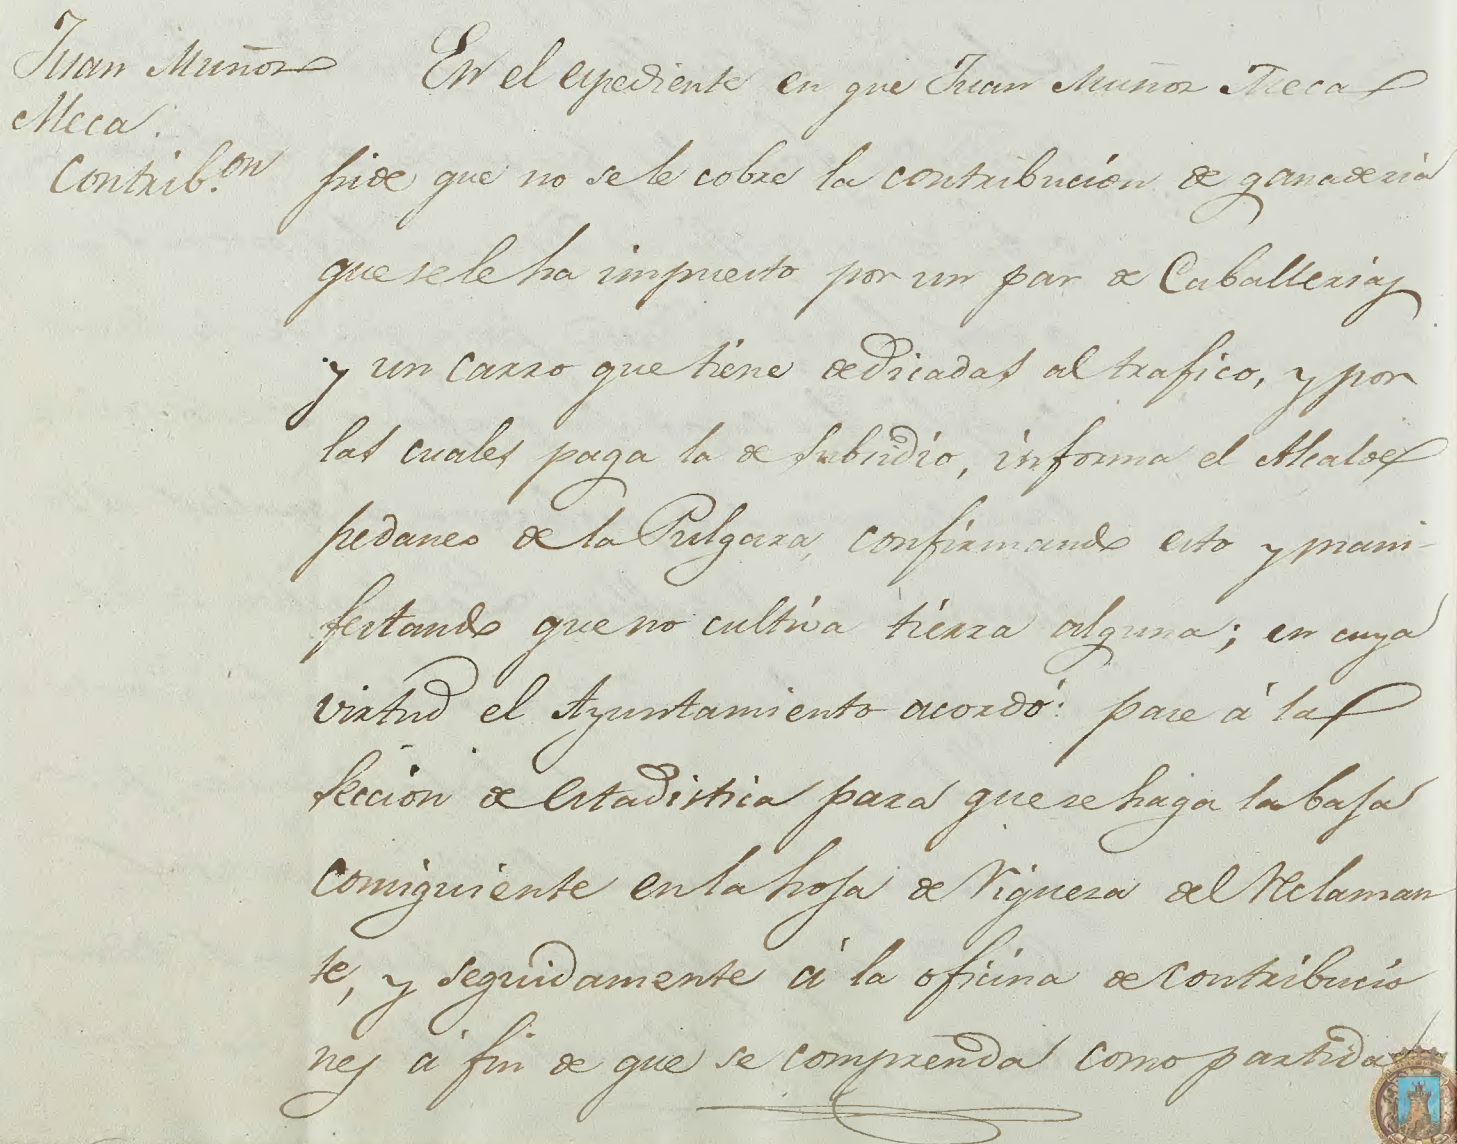 Juan Muñoz
Meca.
Contrib.on
En el espediente en que Juan Muñoz Meca
pide que no se le cobre la contribución de ganaderia
que se le ha impuesto por un par de Caballerias
y un carro que tiene dedicadas al trafico, y por
las cuales paga la de subsidio, informa el Alcalde
pedaneo de la Pulgara, confirmando esto y mani-
festando que no cultiva tierra alguna; en cuya
virtud el Ayuntamiento acordó: pase á la
Seccion de Estadistica para que se haga la baja
consiguiente en la hoja de riqueza del reclaman
te, y seguidamente á la oficina de contribucio
nes á fin de que se comprenda como partida